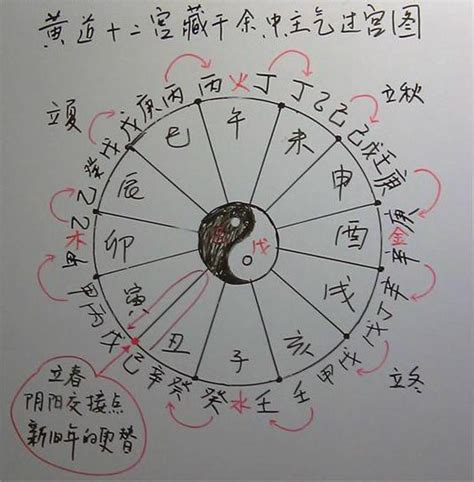 黄道十二宫藏干余中主气过宫图
丙 火 丁
丙 丁
庚 乙
戊 己
立夏 立秋
巳 午 未
戊 己
癸 戊
辰 申
壬
庚
乙
乙
木 卯 酉 金
戊
辛
甲
甲 寅 戌 辛
丙 戊
戊 丑 子 亥 丁
己 戊
辛 甲
癸 癸 水 壬 壬
立冬
立春
阴阳交接点
新旧年的更替